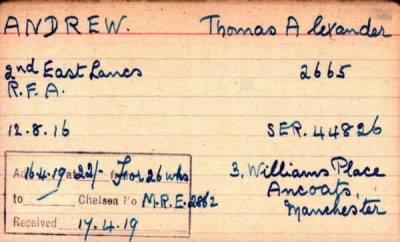 ANDREW. Thomas Alexander
2nd East Lancs 2665
R.F.A.
12.8.16 SER. 44826
16.4.19 at 22/- For 26 wks 3. Williams Place
to Chelsea No M.R.E. 2862 Ancoats,
Received 17.4.19 Manchester